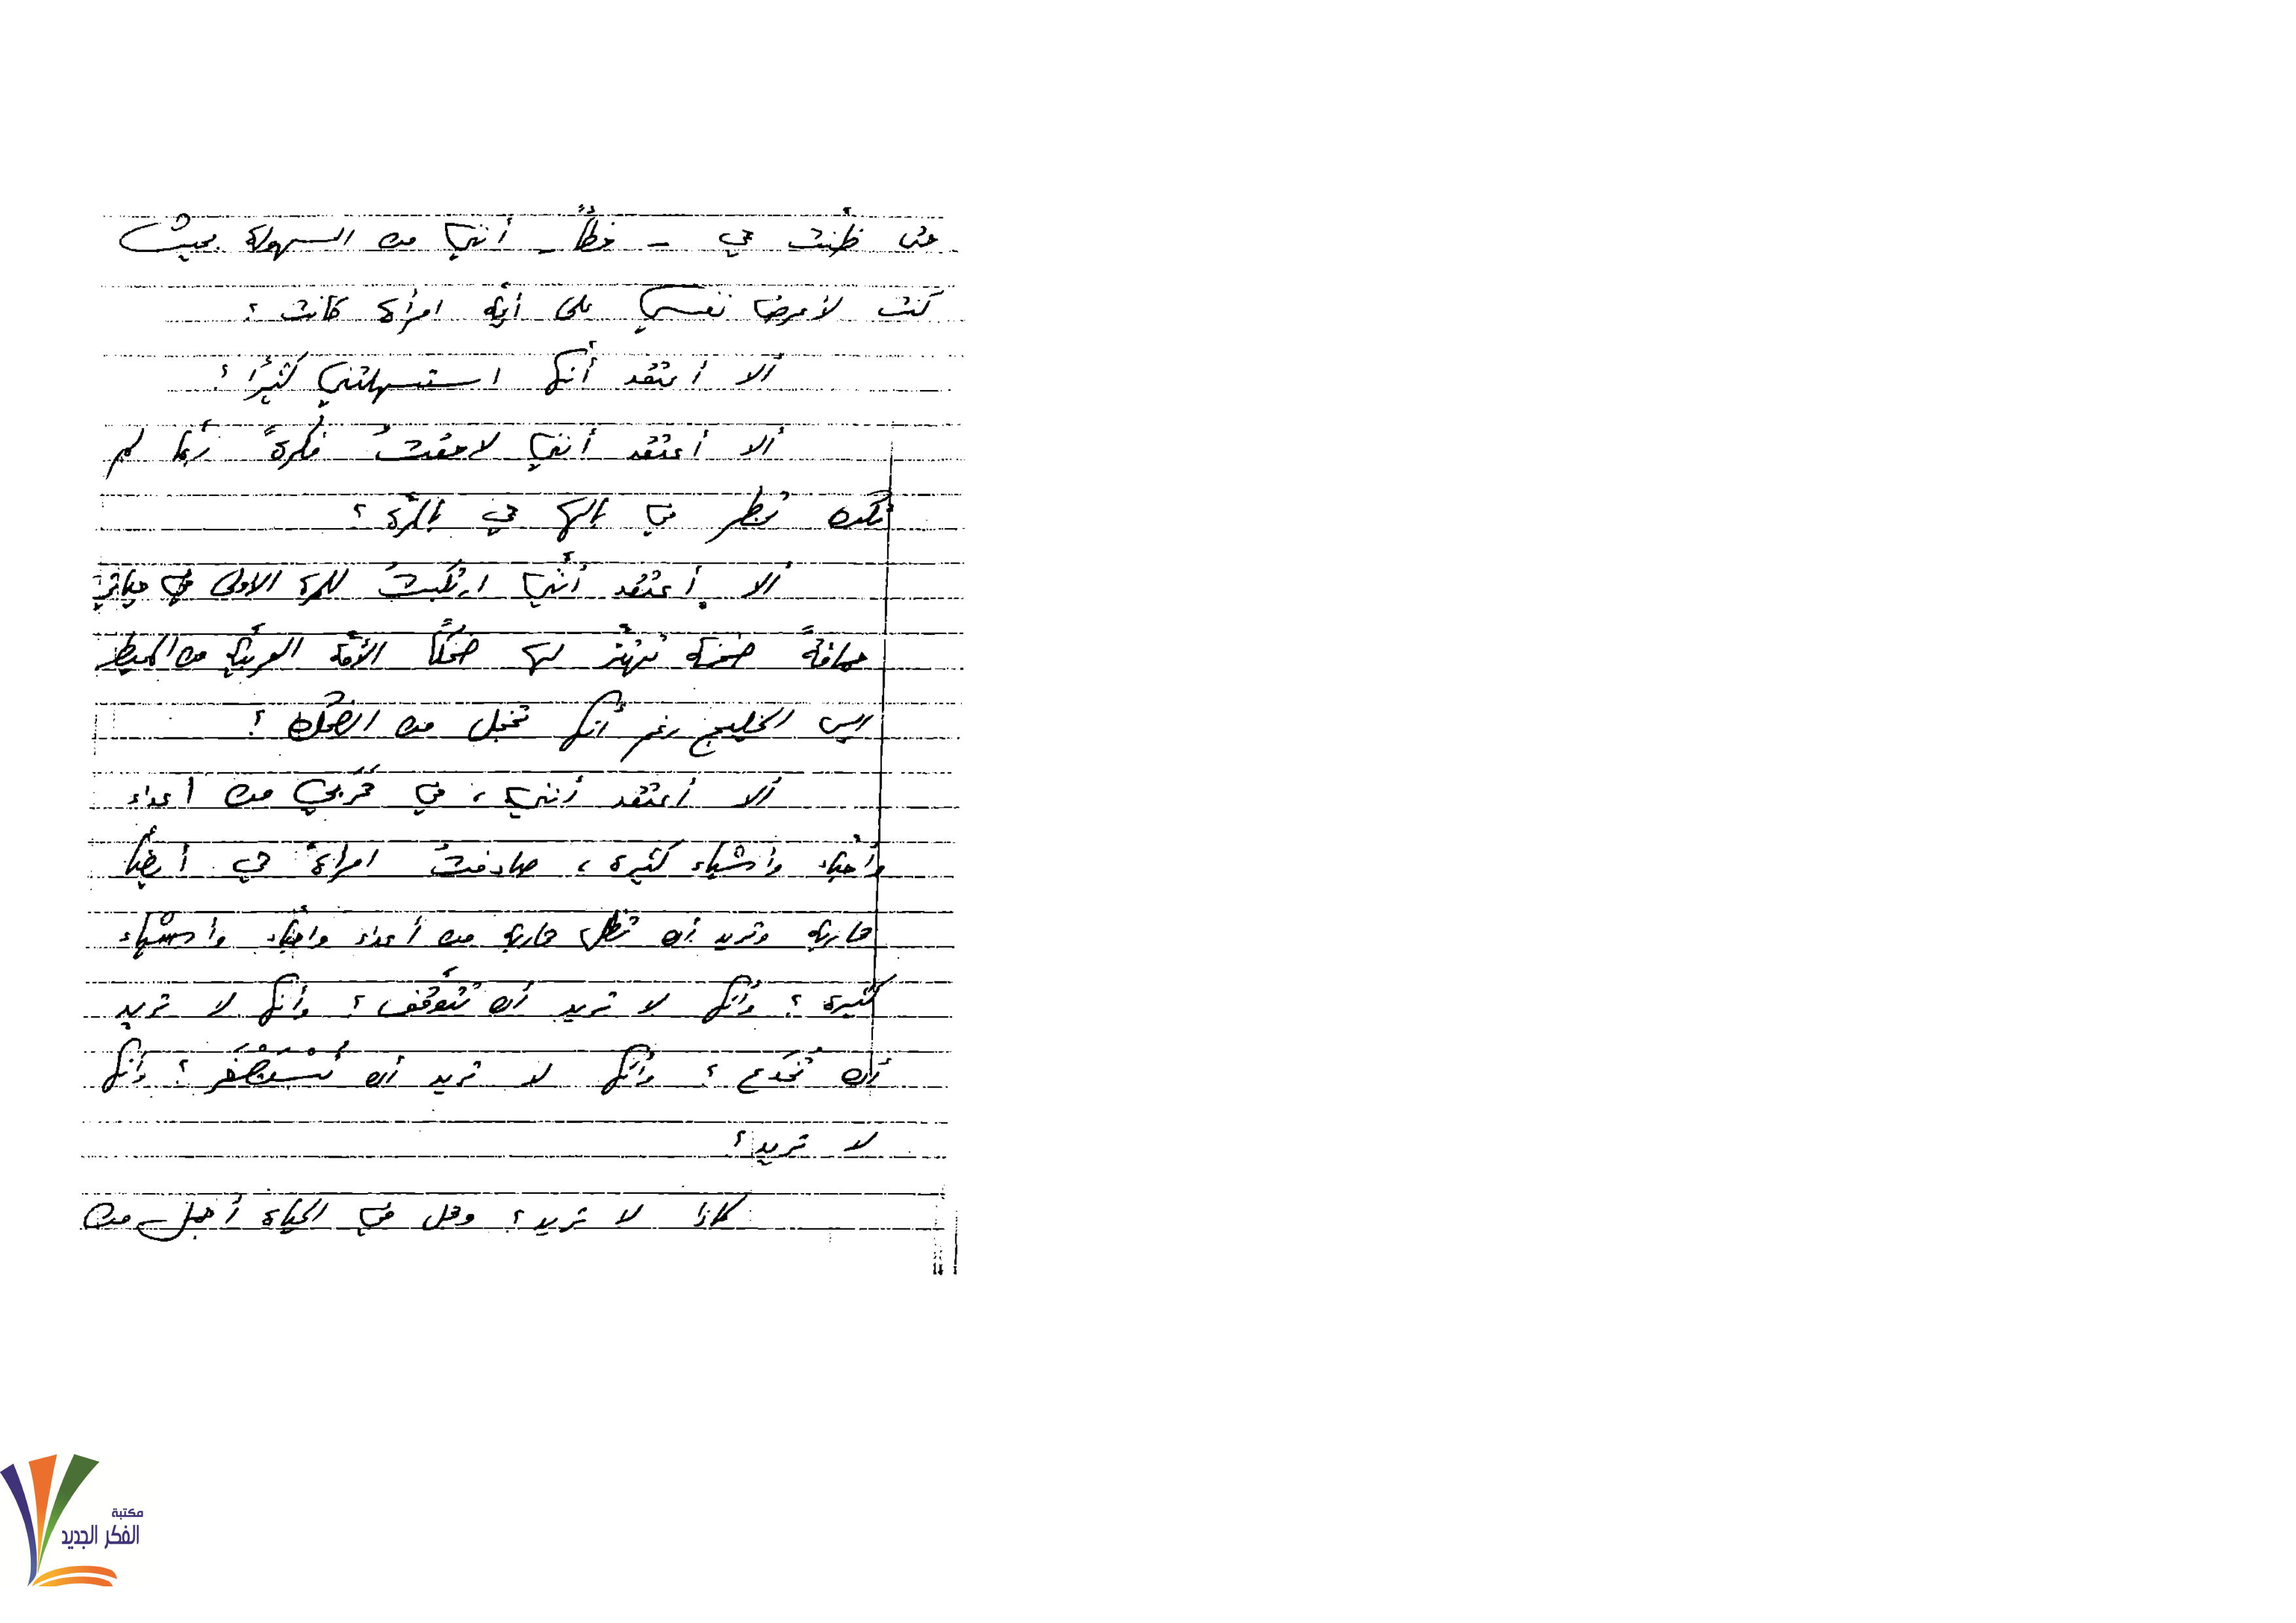 حتى ظننت هي - خطأً - أنني من السهولة بحيث
كنت لأعرض نفسي على أية امرأة كانت؟
ألا أعتقد أنها استسهلتني كثيرًا؟
ألا أعتقد أنني لاحقتُ فكرةً ربّما لم
تكن تخطر في بالها هي بالمرّة؟
ألا أعتقد أنّني ارتكبتُ للمرة الاولى في حياتي
حماقةً ضخمة تهتزّ لها ضحكًا الأمّة العربيّة من المحيط
الى الخليج رغم أنّها تخجل من الضحك؟
ألا أعتقد أنني، في هَرَبي من أعداء
وأحبّاء وأشياء كثيرة، صادفتُ امرأةً هي أيضًا
هاربة وتريد أن تظلّ هاربة من أعداء وأحبّاء وأشياء
كثيرة؟ وأنّها لا تريد أن تتوقّف؟ وأنّها لا تريد
أن تُخدَع؟ وأنّها لا تريد أن تُسْتَضْعَف؟ وأنّها
لا تريد؟
لماذا لا تريد؟ وهل في الحياة أجمل من
مكتبة
الفكر الجديد